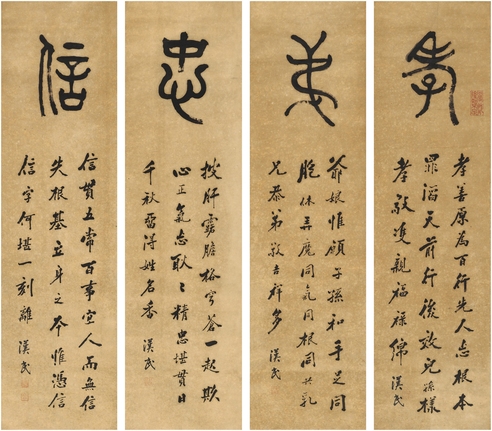 孝
孝善原為百行先人忘根本
罪滔天前行後效兒孫樣
孝敬雙親福祿綿 漢民
弟
爺娘惟願子孫和手足同
胞休弄魔同氣同根同共乳
兄恭弟敬吉祥多 漢民
忠
披肝露膽格穹蒼一起欺
心正氣忘耿〻精忠堪貫日
千秋留得姓名香 漢民
信
信貫五常百事宜人而無信
失根基立身之本惟憑信
信字何堪一刻離 漢民